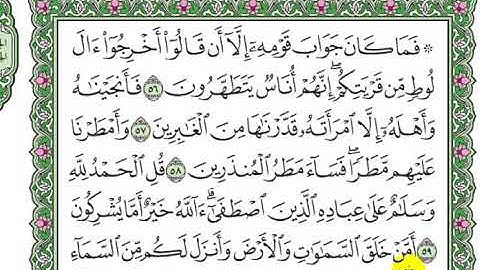 * فَمَا كَانَ جَوَابَ قَوْمِهِۦٓ إِلَّآ أَن قَالُوٓا۟ أَخْرِجُوٓا۟ ءَالَ
لُوطٍ مِّن قَرْيَتِكُمْ ۖ إِنَّهُمْ أُنَاسٌ يَتَطَهَّرُونَ ٥٦ فَأَنجَيْنَـٰهُ
وَأَهْلَهُۥٓ إِلَّا ٱمْرَأَتَهُۥ قَدَّرْنَـٰهَا مِنَ ٱلْغَـٰبِرِينَ ٥٧ وَأَمْطَرْنَا
عَلَيْهِم مَّطَرًا ۖ فَسَآءَ مَطَرُ ٱلْمُنذَرِينَ ٥٨ قُلِ ٱلْحَمْدُ لِلَّهِ
وَسَلَـٰمٌ عَلَىٰ عِبَادِهِ ٱلَّذِينَ ٱصْطَفَىٰٓ ۗ ءَآللَّهُ خَيْرٌ أَمَّا يُشْرِكُونَ
٥٩ أَمَّنْ خَلَقَ ٱلسَّمَـٰوَٰتِ وَٱلْأَرْضَ وَأَنزَلَ لَكُم مِّنَ ٱلسَّمَآءِ